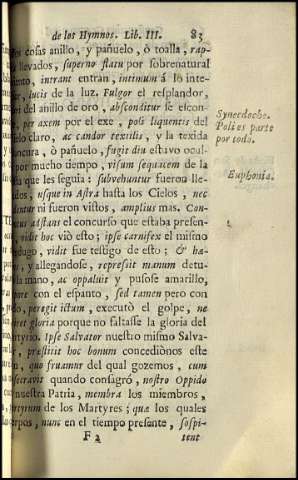 de los Hymnos. Lib. III. 83
cosas anillo, y pañuelo, ò toalla, rap-
llevados, superno flatu por sobrenatural
intrant entran, intimum á lo inte-
lucis de la luz. Fulgor el resplandor,
del anillo de oro, absconditur se escon-
per axem por el exe, poli liquentis del
Cielo claro, ac candor textilis, y la texida
blancura, ò pañuelo, fugit diu estavo ocul-
por mucho tiempo, visum sequacem de la
que les seguia: subvehuntur fueron lle-
usque in Astra hasta los Cielos, nec
ni fueron vistos, amplius mas. Con-
adstans el concurso que estaba presen-
vidit hoc viò esto; ipse carnifex el mismo
vidit fue testigo de esto; & hæ-
y allegandose, repressit manum detu-
la mano, ac oppaluit y pusose amarillo,
con el espanto, sed tamen pero con
peregit ictum, executò el golpe, ne
gloria porque no faltasse la gloria del
Ipse Salvator nuestro mismo Salva-
præstitit hoc bonum concediònos este
quo fruamur del qual gozemos, cum
quando consagrò, nostro Oppido
nuestra Patria, membra los miembros,
Martyrum de los Martyres; quæ los quales
nunc en el tiempo presente, sospi-
F 2 tent
Synecdoche.
Poli es parte
por todo.
Euphonia.